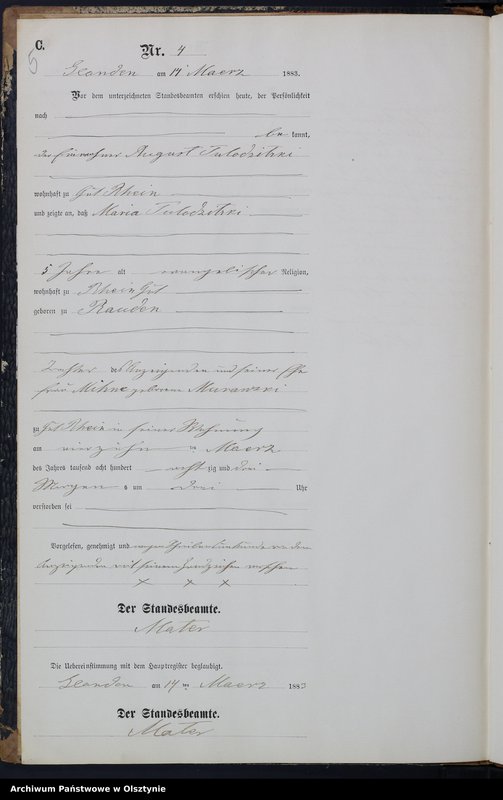 C.
5
Nr. 4
Glanden am 14 Maerz 1883.
Vor dem unterzeichneten Standesbeamten erschien heute, der Persönlichkeit
nach
be kannt,
der Einwohner August Tulodzitzki
wohnhaft zu Gut Rhein
und zeigte an, daß Maria Tulodzitzki
5 Jahre alt evangelischer Religion,
wohnhaft zu Rhein Gut
geboren zu Rauden
Tochter des Anzeigenden und seiner Ehe
frau Mihne geborene Murawski
zu Gut Rhein in seiner Wohnung
am vierzehn ten Maerz
des Jahres tausend acht hundert acht zig und drei
Morgens um drei Uhr
verstorben sei
Vorgelesen, genehmigt und wegen Schreibensunkunde von dem
Anzeigenden mit seinem Handzeichen versehen
× × ×
Der Standesbeamte.
Mater
Die Uebereinstimmung mit dem Hauptregister beglaubigt.
Glanden am 14 ten Maerz 1883
Der Standesbeamte.
Mater
Archiwum Państwowe w Olsztynie